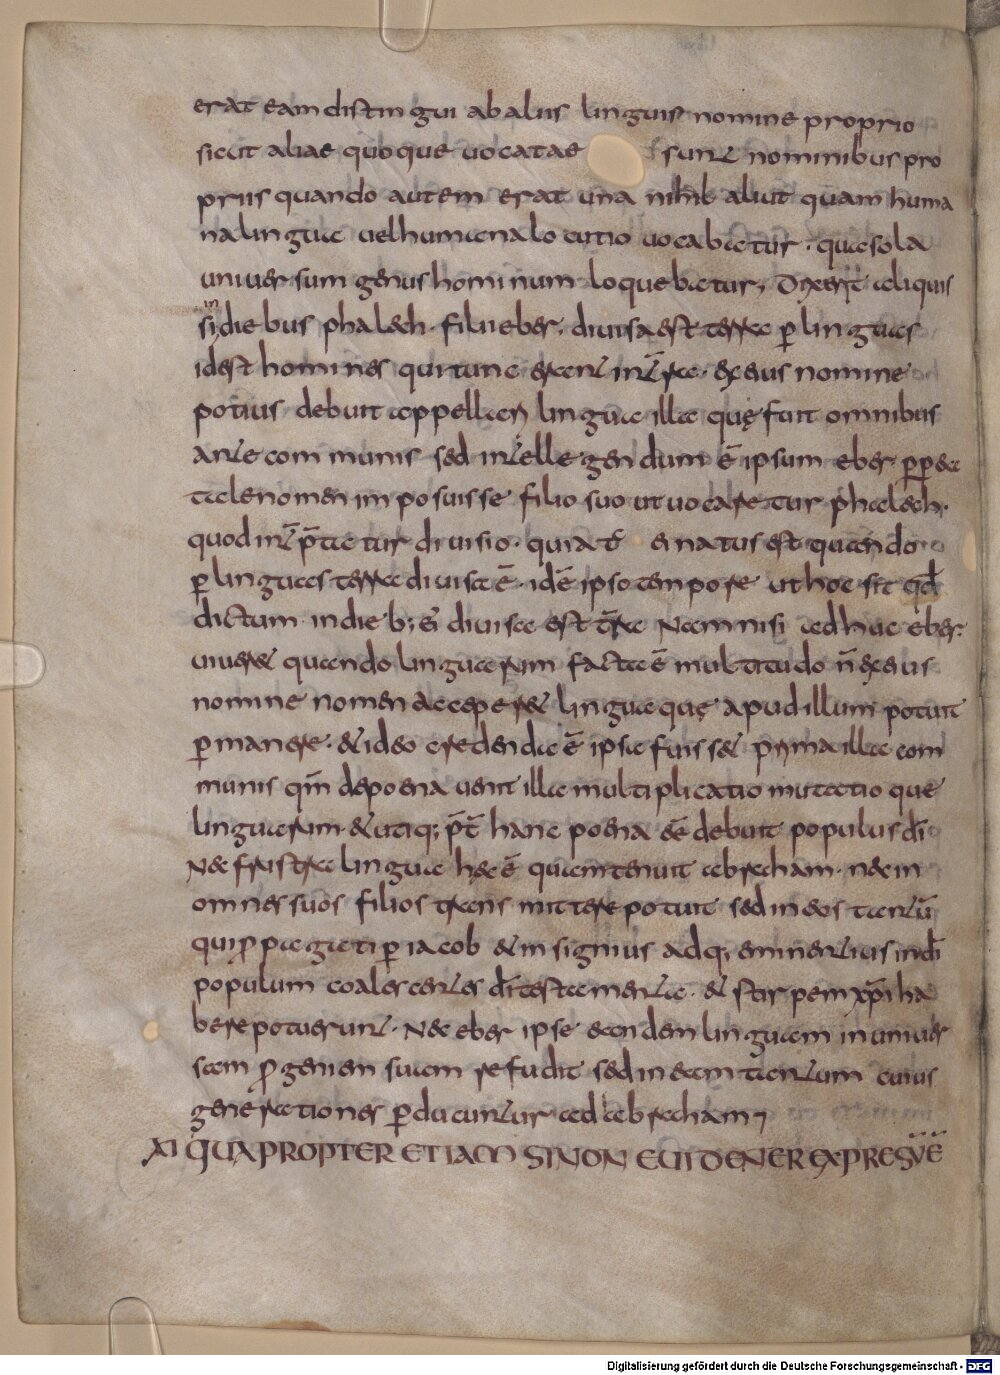 erat eam distingui ab aliis linguis nomine proprio
sicut aliae quoque uocatae sunt nominibus pro
priis quando autem erat una nihil aliut quam huma
na lingua uel humana locutio uocabatur · quae sola
uniuersum genus hominum loquebatur, Dixerit aliquis
si in diebus phalech · filii eber, diuisa est terra p̄ linguas
idest homines qui tunc erant in t̄ra · ex eius nomine
potius debuit appellari lingua illa quę fuit omnibus
ante communis sed intellegendum ē ipsum eber · ꝓpt&
tale nomen imposuisse filio suo ut uocaretur phalech ·
quod int̄p̄tatur diuisio · quia t̄c ei natus est quando
p̄ linguas terra diuisa ē · id ē ipso tempore ut hoc sit qđ
dictum in dieb; ei diuisa est t̄ra Nam nisi adhuc eber ·
uiuer& quando linguarum facta ē multitudo n̄ ex eius
nomine nomen acceper& lingua quę apud illum potuit
p̄manere · & ideo credenda ē ipsa fuisse prima illa com
munis qm̄ de poena uenit illa multiplicatio mutatio que
linguarum · & utiq; p̄t̄ hanc poena ēe debuit populus dī
Nec frustra lingua haec ē quam tenuit abracham · nec in
omnes suos filios transmittere potuit sed in eos tantū
qui ꝓpagati p̄ iacob & insignius adq; eminentius in dī
populum coalescentes dī testamenta · & stirpem xp̄i ha
bere potuerunt · Nec eber ipse eandem linguam in uniuer
sam ꝓgeniem suam refudit sed in eam tantum cuius
generationes p̄ducuntur ad abracham ,
XI QUAPROPTER ETIAM SI NON EUIDENTER EXPRESSUM Ē
Digitalisierung gefördert durch die Deutsche Forschungsgemeinschaft - DFG